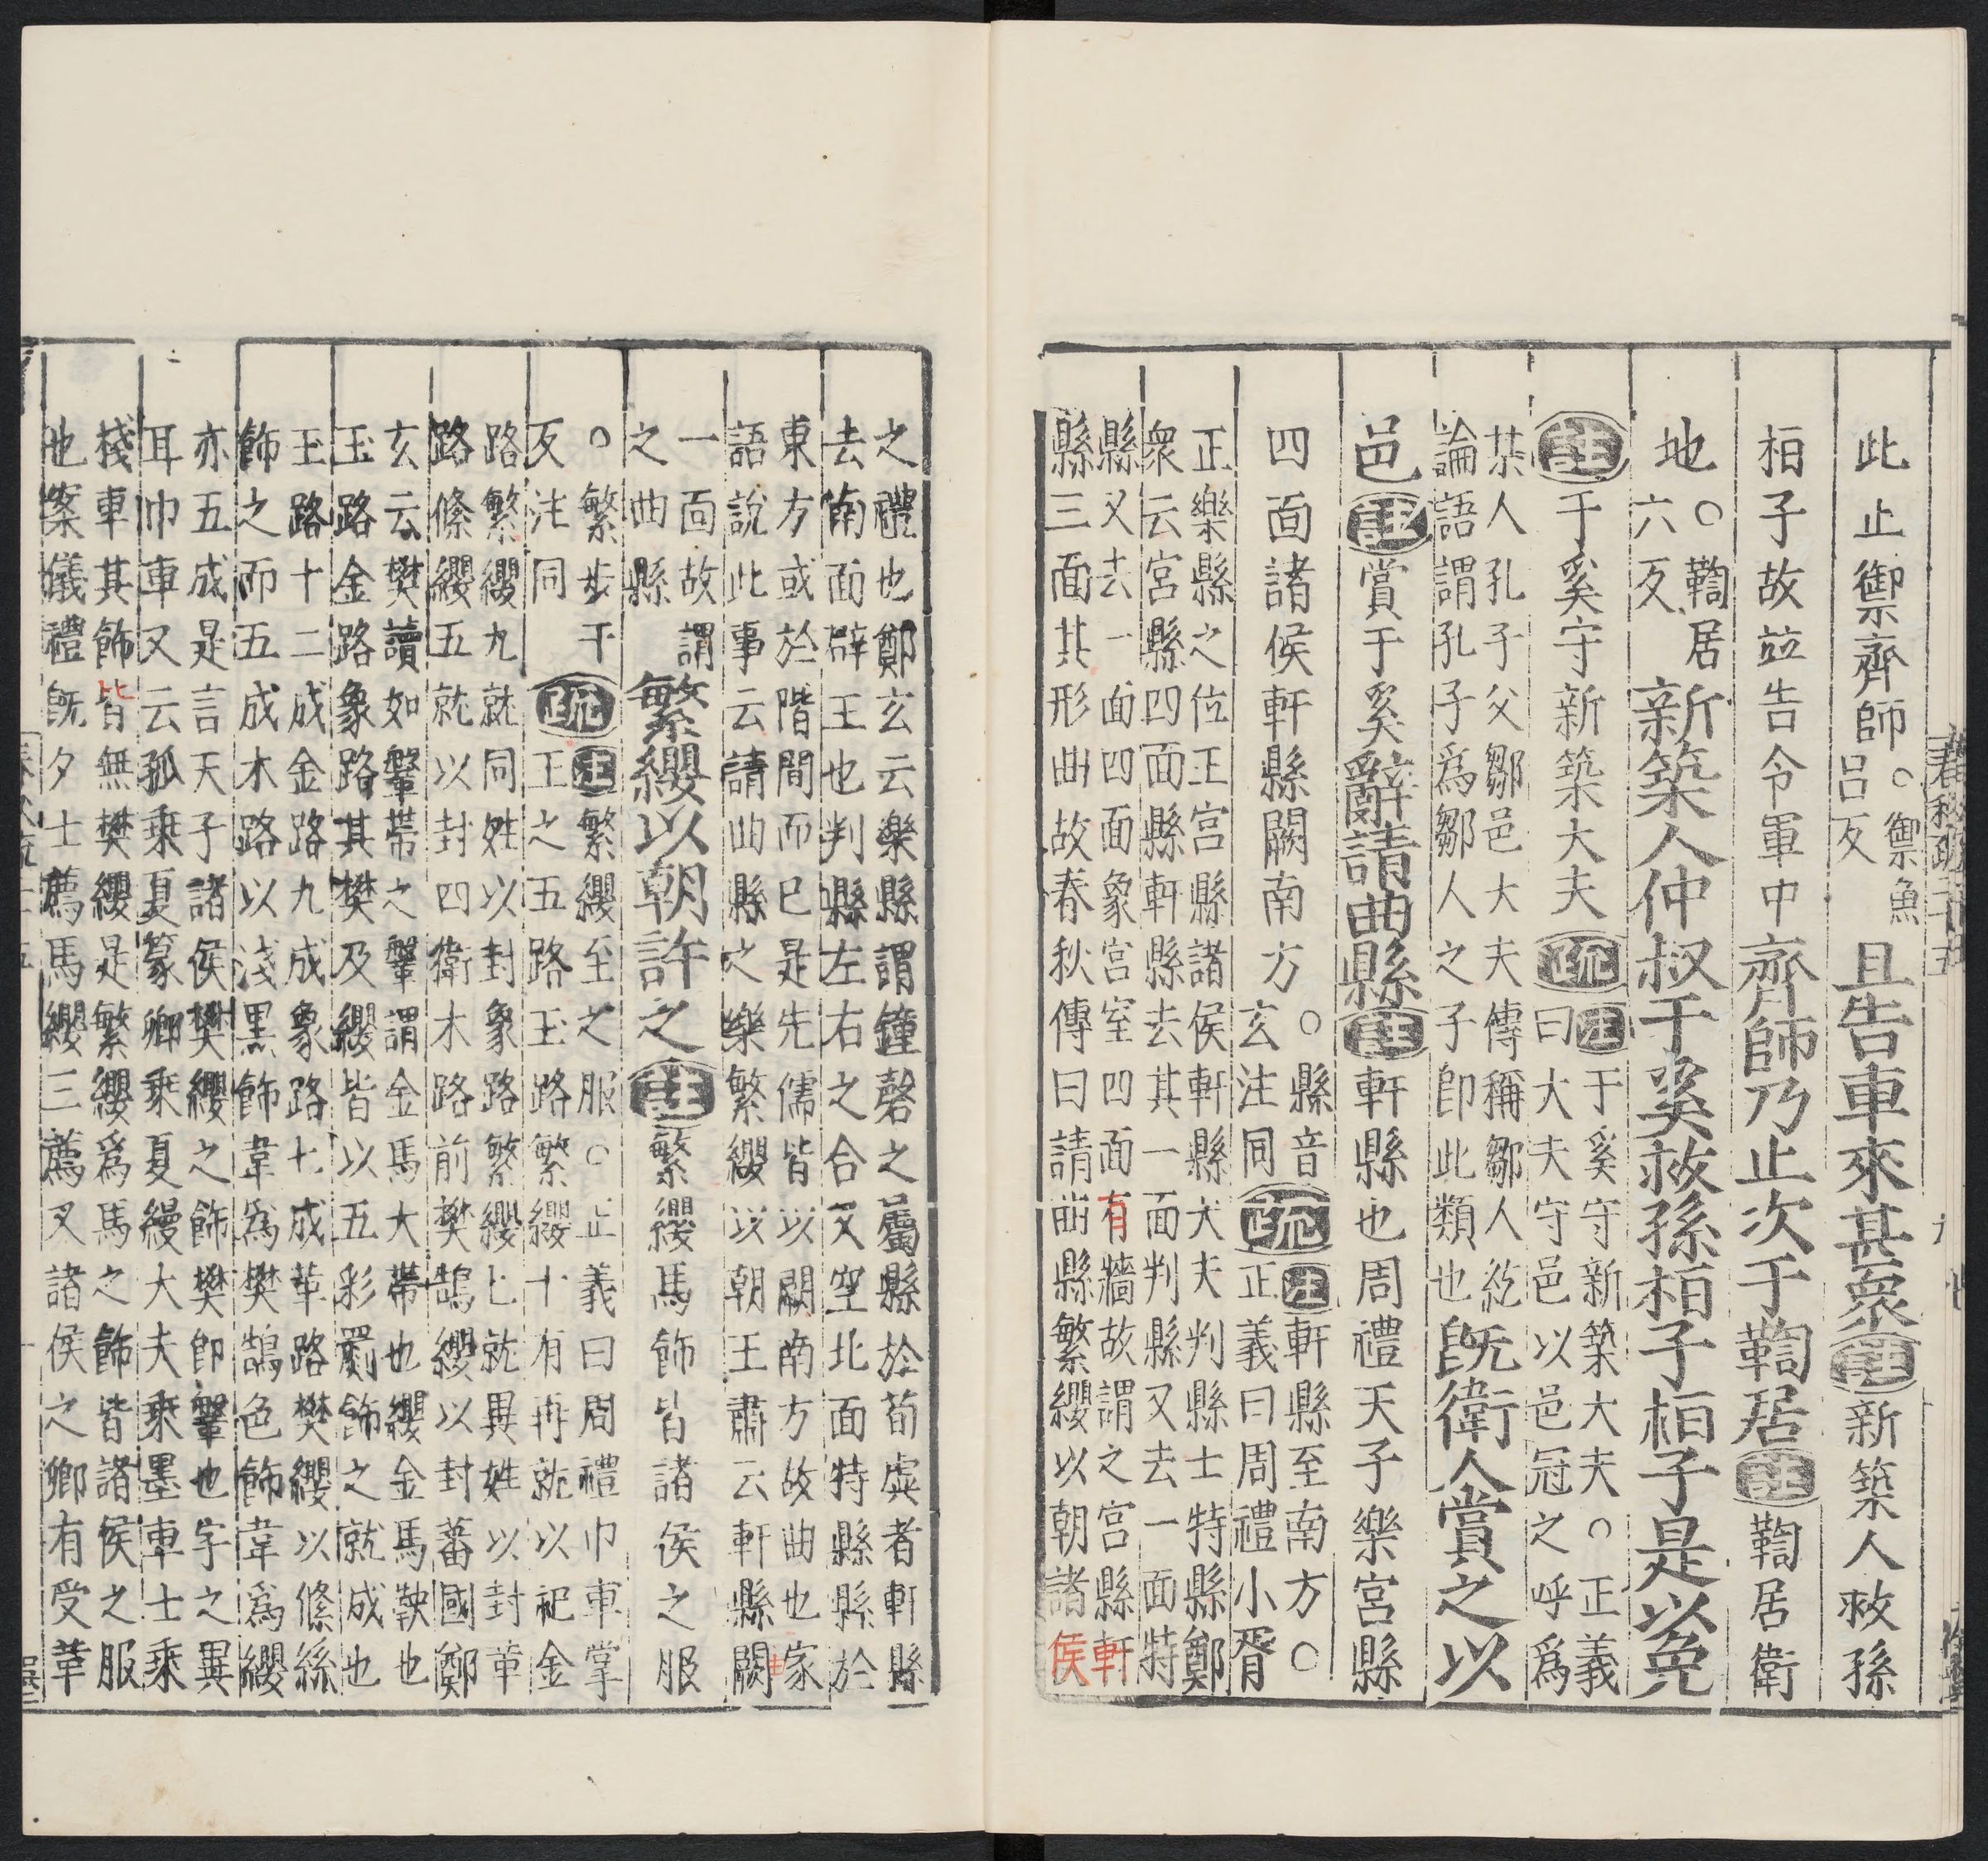 此止御齊師○禦魚
呂反
且告車來甚衆註新築人救孫
桓子故並告令軍中齊師乃止次于鞫居註鞫居衛
地○鞫居
六反
新築人仲叔于奚救孫桓子桓子是以免
註于奚守新築大夫疏注于奚守新築大夫○正義
曰大夫守邑以邑冠之呼爲
某人孔子父鄹邑大夫傳稱鄹人紇
論語謂孔子爲鄹人之子即此類也
既衛人賞之以
邑註賞于奚辭請曲縣註軒縣也周禮天子樂宮縣
四面諸侯軒縣闕南方○縣音
玄注同
疏注軒縣至南方○
正義曰周禮小胥
正樂縣之位王宮縣諸侯軒縣大夫判縣士特縣鄭
衆云宮縣四面縣軒縣去其一面判縣又去一面特
縣又去一面四面象宮室四面有牆故謂之宮縣軒
縣三面其形曲故春秋傳曰請曲縣繁纓以朝諸侯
之禮也鄭玄云樂縣謂鐘磬之屬縣於筍虡者軒縣
去南面辟王也判縣左右之合又空北面特縣縣於
東方或於階間而已是先儒皆以闕南方故曲也家
語說此事云請曲縣之樂繁纓以朝王肅云軒縣闕
一面故謂
之曲縣
繁纓以朝許之註繁纓馬飾皆諸侯之服
○繁步干
反注同
疏注繁纓至之服○正義曰周禮巾車掌
王之五路玉路繁纓十有再就以祀金
路繁纓九就同姓以封象路繁纓七就異姓以封革
路絛纓五就以封四衛木路前樊鵠纓以封蕃國鄭
玄云樊讀如鞶帶之鞶謂金馬大帶也纓金馬鞅也
玉路金路象路其樊及纓皆以五彩罽飾之就成也
王路十二成金路九成象路七成革路樊纓以絛絲
飾之而五成木路以淺黑飾韋爲樊鵠色飾韋爲纓
亦五成是言天子諸侯樊纓之飾樊即鞶也字之異
耳巾車又云孤乘夏篆卿乘夏縵大夫乘墨車士乘
棧車其飾皆無樊纓是繁纓爲馬之飾皆諸侯之服
也案儀禮既夕士薦馬纓三薦又諸侯之卿有受革